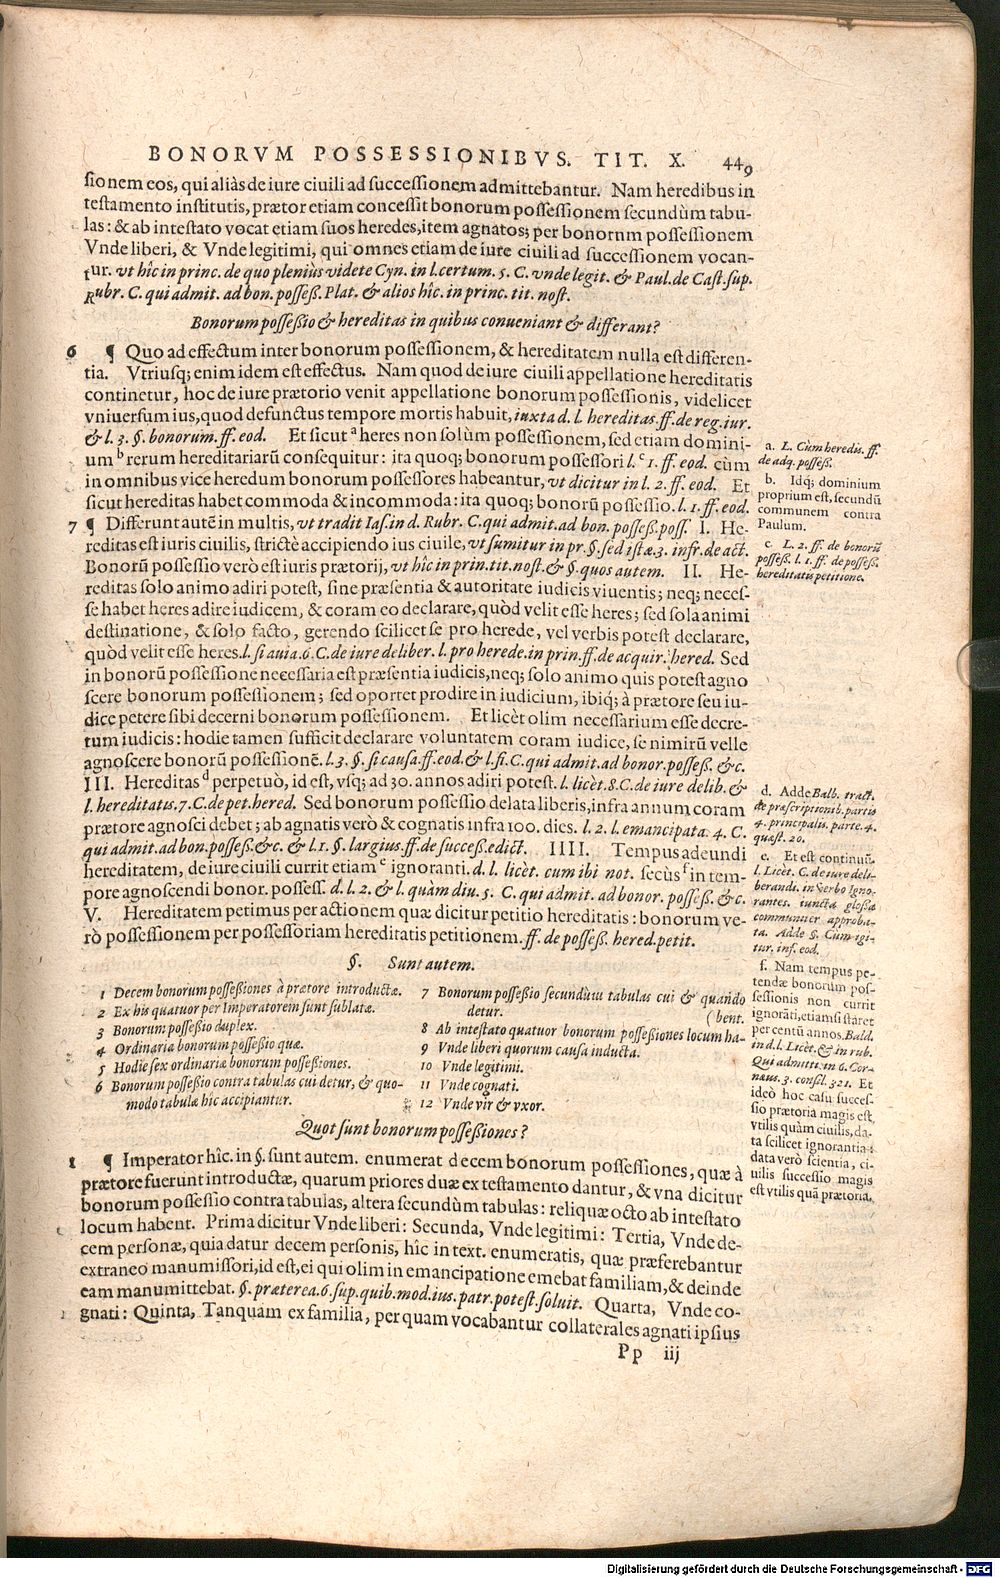 BONORVM POSSESSIONIBVS. TIT. X. 449
sionem eos, qui aliàs de iure ciuili ad successionem admittebantur. Nam heredibus in
testamento institutis, prætor etiam concessit bonorum possessionem secundùm tabu-
las: & ab intestato vocat etiam suos heredes, item agnatos; per bonorum possessionem
Vnde liberi, & Vnde legitimi, qui omnes etiam de iure ciuili ad successionem vocan-
tur. vt hîc in princ. de quo pleniùs videte Cyn. in l. certum. 5. C. vnde legit. & Paul. de Cast. sup.
Rubr. C. qui admit. ad bon. posseß. Plat. & alios hîc. in princ. tit. nost.
Bonorum posseßio & hereditas in quibus conueniant & differant?
6 ¶ Quo ad effectum inter bonorum possessionem, & hereditatem nulla est differen-
tia. Vtriusq; enim idem est effectus. Nam quod de iure ciuili appellatione hereditatis
continetur, hoc de iure prætorio venit appellatione bonorum possessionis, videlicet
vniuersum ius, quod defunctus tempore mortis habuit, iuxta d. l. hereditas. ff. de reg. iur.
& l. 3. §. bonorum. ff. eod. Et sicut a heres non solùm possessionem, sed etiam domini-
um b rerum hereditariarũ consequitur: ita quoq; bonorum possessori l. c 1. ff. eod. cùm
in omnibus vice heredum bonorum possessores habeantur, vt dicitur in l. 2. ff. eod. Et
sicut hereditas habet commoda & incommoda: ita quoq; bonorũ possessio. l. 1. ff. eod.
7 ¶ Differunt autẽ in multis, vt tradit Ias. in d. Rubr. C. qui admit. ad bon. posseß. poss. I. He-
reditas est iuris ciuilis, strictè accipiendo ius ciuile, vt sumitur in pr. §. sed istæ. 3. infr. de act.
Bonorũ possessio verò est iuris prætorij, vt hîc in prin. tit. nost. & §. quos autem. II. He-
reditas solo animo adiri potest, sine præsentia & autoritate iudicis viuentis; neq; neces-
se habet heres adire iudicem, & coram eo declarare, quòd velit esse heres; sed sola animi
destinatione, & solo facto, gerendo scilicet se pro herede, vel verbis potest declarare,
quòd velit esse heres. l. si auia. 6. C. de iure deliber. l. pro herede. in prin. ff. de acquir. hered. Sed
in bonorũ possessione necessaria est præsentia iudicis, neq; solo animo quis potest agno
scere bonorum possessionem; sed oportet prodire in iudicium, ibiq; à prætore seu iu-
dice petere sibi decerni bonorum possessionem. Et licèt olim necessarium esse decre-
tum iudicis: hodie tamen sufficit declarare voluntatem coram iudice, se nimirũ velle
agnoscere bonorũ possessionẽ. l. 3. §. si causa. ff. eod. & l. fi. C. qui admit. ad bonor. posseß. &c.
III. Hereditas d perpetuò, id est, vsq; ad 30. annos adiri potest. l. licèt. 8. C. de iure delib. &
l. hereditatis. 7. C. de pet. hered. Sed bonorum possessio delata liberis, infra annum coram
prætore agnosci debet; ab agnatis verò & cognatis infra 100. dies. l. 2. l. emancipata. 4. C.
qui admit. ad bon. posseß. &c. & l. 1. §. largius. ff. de succeß. edict. IIII. Tempus adeundi
hereditatem, de iure ciuili currit etiam e ignoranti. d. l. licèt. cum ibi not. secùs f in tem-
pore agnoscendi bonor. possess. d. l. 2. & l. quàm diu. 5. C. qui admit. ad bonor. posseß. &c.
V. Hereditatem petimus per actionem quæ dicitur petitio hereditatis: bonorum ve-
rò possessionem per possessoriam hereditatis petitionem. ff. de posseß. hered. petit.
§. Sunt autem.
1 Decem bonorum posseßiones à prætore introductæ.
2 Ex his quatuor per Imperatorem sunt sublatæ.
3 Bonorum posseßio duplex.
4 Ordinaria bonorum posseßio quæ.
5 Hodie sex ordinariæ bonorum posseßiones.
6 Bonorum posseßio contra tabulas cui detur, & quo-
modo tabulæ hîc accipiantur.
7 Bonorum posseßio secundùm tabulas cui & quando
detur. (bent.
8 Ab intestato quatuor bonorum posseßiones locum ha-
9 Vnde liberi quorum causa inducta.
10 Vnde legitimi.
11 Vnde cognati.
12 Vnde vir & vxor.
Quot sunt bonorum posseßiones?
1 ¶ Imperator hîc. in §. sunt autem. enumerat decem bonorum possessiones, quæ à
prætore fuerunt introductæ, quarum priores duæ ex testamento dantur, & vna dicitur
bonorum possessio contra tabulas, altera secundùm tabulas: reliquæ octo ab intestato
locum habent. Prima dicitur Vnde liberi: Secunda, Vnde legitimi: Tertia, Vnde de-
cem personæ, quia datur decem personis, hîc in text. enumeratis, quæ præferebantur
extraneo manumissori, id est, ei qui olim in emancipatione emebat familiam, & deinde
eam manumittebat. §. præterea. 6. sup. quib. mod. ius. patr. potest. soluit. Quarta, Vnde co-
gnati: Quinta, Tanquam ex familia, per quam vocabantur collaterales agnati ipsius
Pp iij
a. L. Cùm heredis. ff.
de adq. posseß.
b. Idq; dominium
proprium est, secundũ
communem contra
Paulum.
c. L. 2. ff. de bonorũ
posseß. l. 1. ff. de posseß.
hereditatis petitione.
d. Adde Balb. tract.
de præscriptionib. partis
4. principalis. parte. 4.
quæst. 20.
e. Et est continuũ.
l. Licèt. C. de iure deli-
berandi. in verbo Igno-
rantes. iuncta glossa
communiter approba-
ta. Adde §. Cùm igi-
tur. inf. eod.
f. Nam tempus pe-
tendæ bonorum pos-
sessionis non currit
ignorāti, etiamsi stâret
per centũ annos. Bald.
in d. l. Licèt. & in rub.
Qui admitti. in 6. Cor-
næus. 3. consil. 321. Et
ideò hoc casu succes-
sio prætoria magis est
vtilis quàm ciuilis, da-
ta scilicet ignorantia:
data verò scientia, ci-
uilis successio magis
est vtilis quã prætoria.
Digitalisierung gefördert durch die Deutsche Forschungsgemeinschaft - DFG